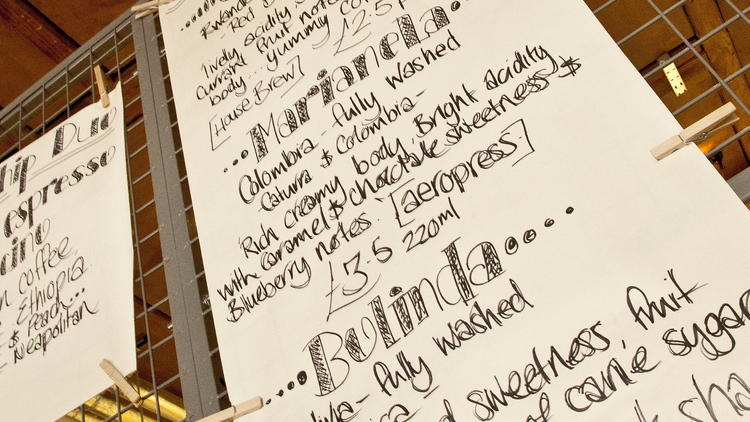 Rwanda
Red
lively acidity
currant fruit notes
body... yummy
[House Brew] £2.5
...Marianela...
Colombia - fully washed
Caturra & Colombia -
Rich creamy body. Bright acidity
with caramel & chocolate sweetness &
Blueberry notes. [aeropress]
£3.5 220ml
....Bolinda....
- fully washed
sweetness, fruit
of cane sugar
hip Duo
espresso
coffee
Ethiopia
& Peach...
- Neapolitan